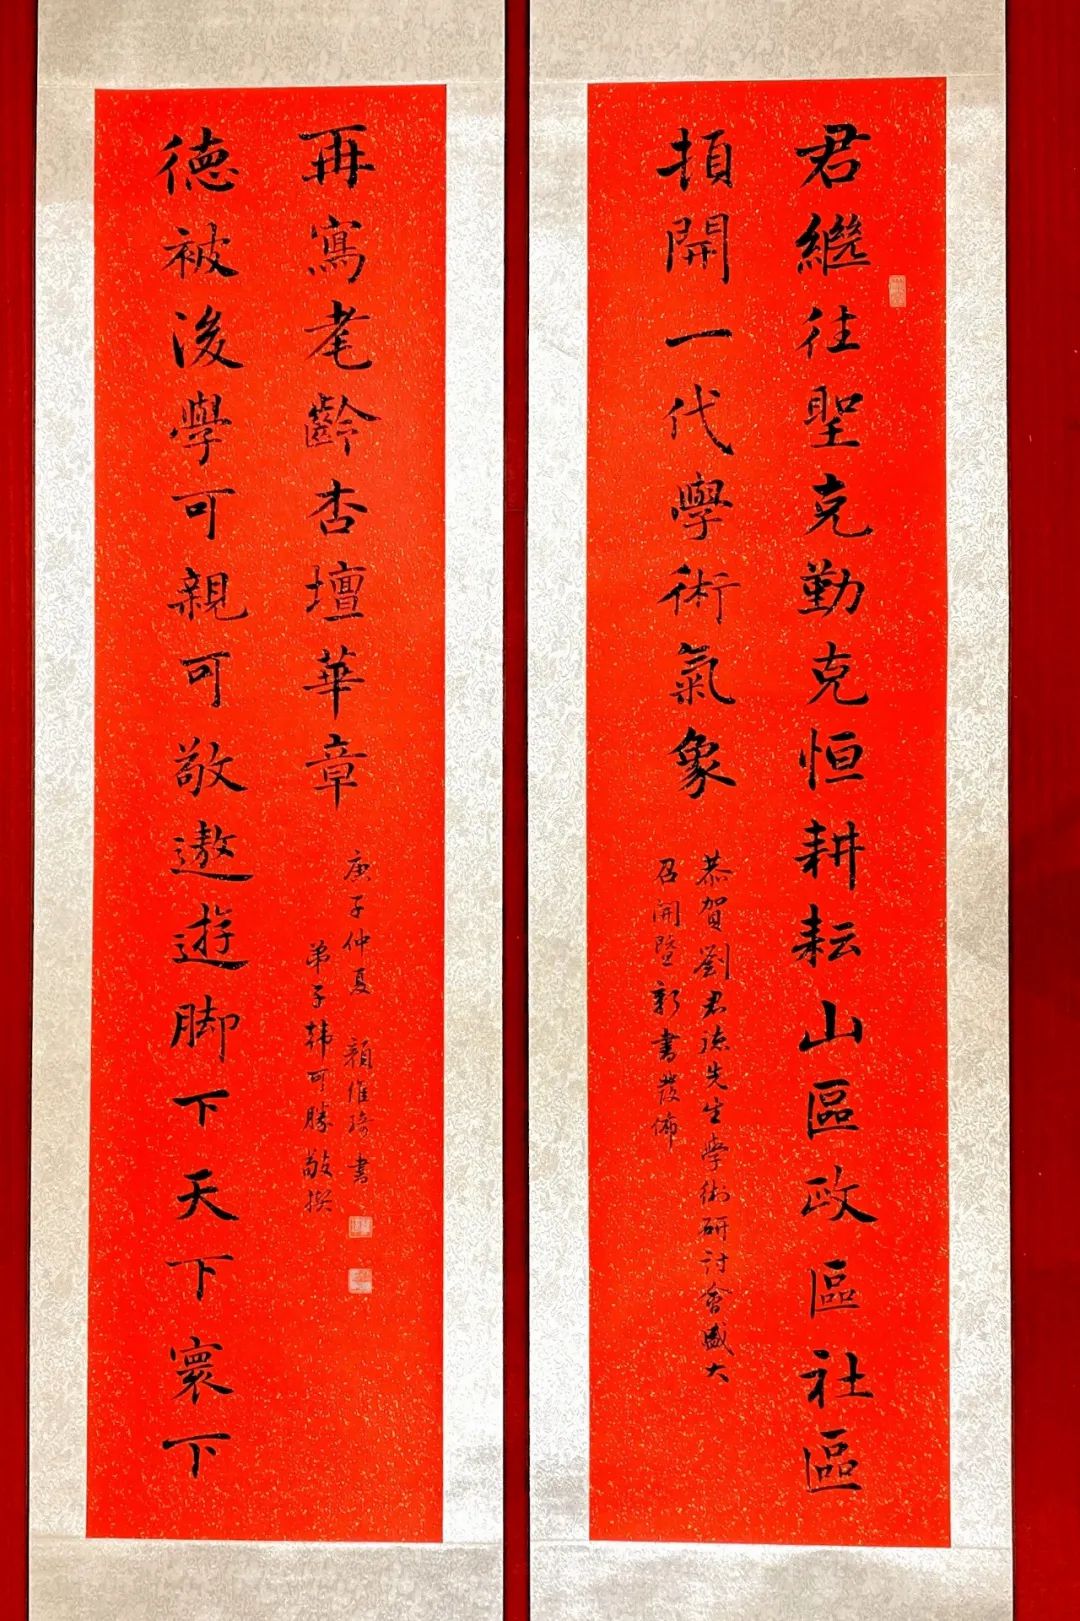 君繼往聖克勤克恒耕耘山區政區社區
頂開一代學術氣象
恭賀劉君德先生學術研討會盛大
召開暨新書發佈
德被後學可親可敬遨遊脚下天下寰下
再寫耄齡杏壇華章
庚子仲夏 顏維琦書
弟子韩可勝敬撰